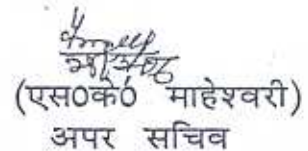 (एस0के0 माहेश्वरी)
अपर सचिव